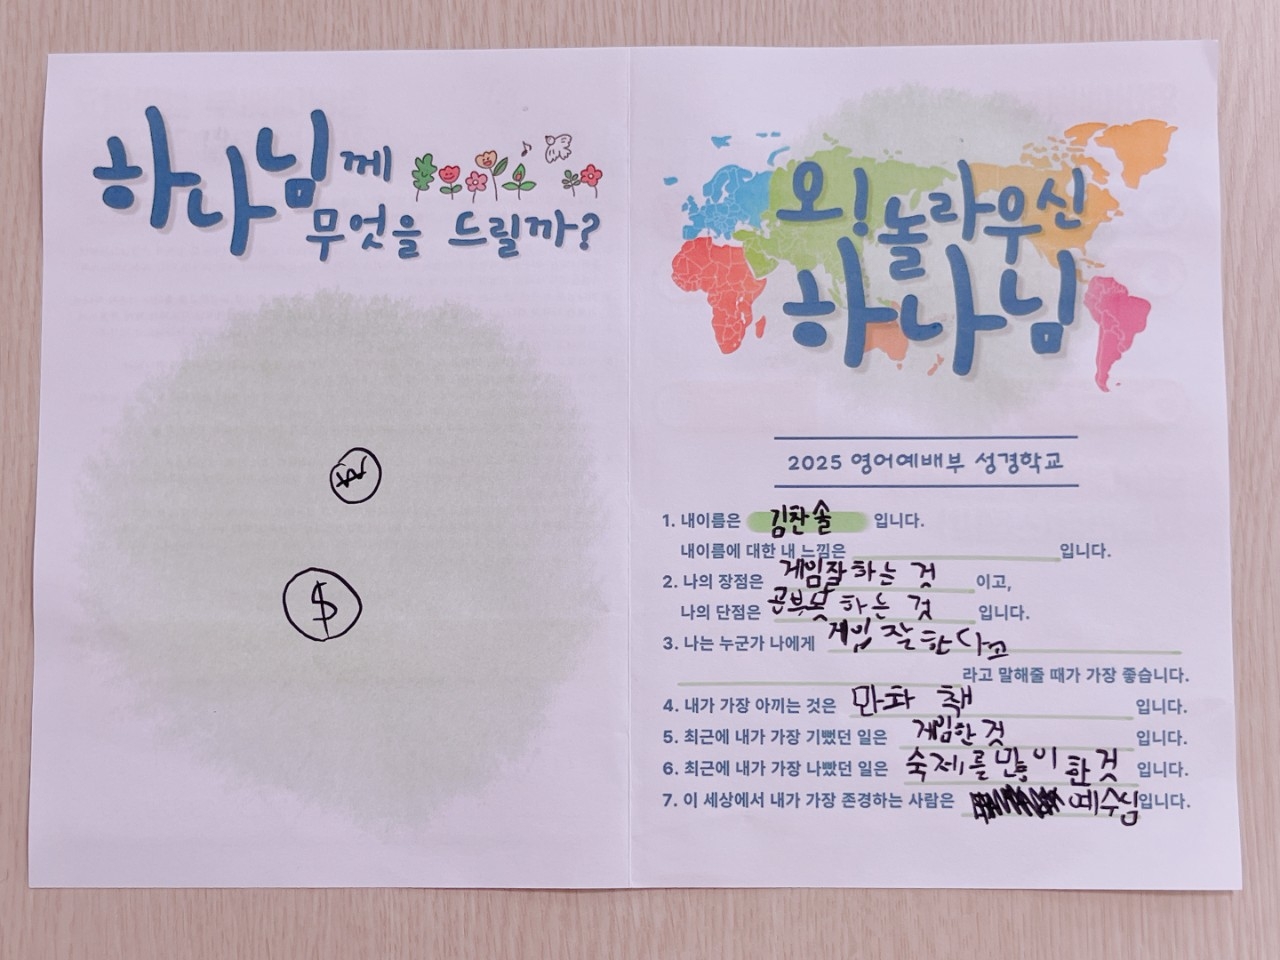 하나님께
무엇을 드릴까?
₩
$
오! 놀라우신
하나님
2025 영어예배부 성경학교
1. 내이름은 김찬솔 입니다.
내이름에 대한 내 느낌은 입니다.
2. 나의 장점은 게임잘하는 것 이고,
나의 단점은 공부못하는 것 입니다.
3. 나는 누군가 나에게 게임 잘한다고
라고 말해줄 때가 가장 좋습니다.
4. 내가 가장 아끼는 것은 만화 책 입니다.
5. 최근에 내가 가장 기뻤던 일은 게임한 것 입니다.
6. 최근에 내가 가장 나빴던 일은 숙제를 많이 한것 입니다.
7. 이 세상에서 내가 가장 존경하는 사람은 예수님 입니다.